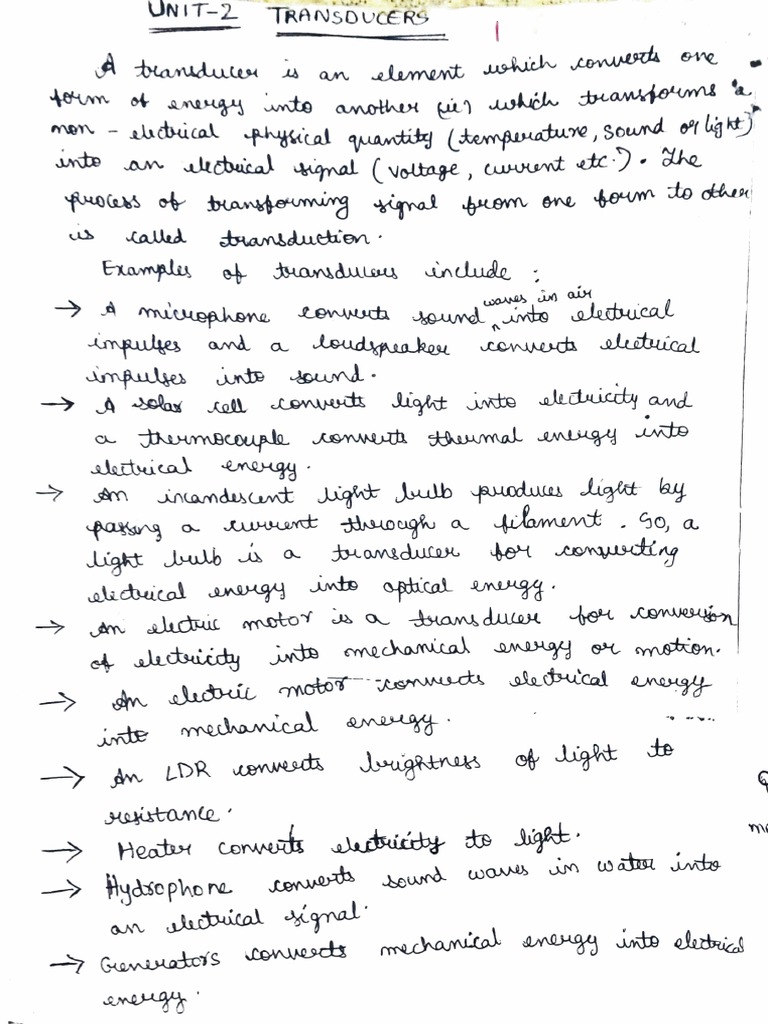 UNIT-2 TRANSDUCERS
A transducer is an element which converts one
form of energy into another (ie) which transforms a
non - electrical physical quantity (temperature, sound or light)
into an electrical signal (voltage, current etc.). The
process of transforming signal from one form to other
is called transduction.
Examples of transducers include :
→ A microphone converts sound waves in air into electrical
impulses and a loudspeaker converts electrical
impulses into sound.
→ A solar cell converts light into electricity and
a thermocouple converts thermal energy into
electrical energy.
→ An incandescent light bulb produces light by
passing a current through a filament. So, a
light bulb is a transducer for converting
electrical energy into optical energy.
→ An electric motor is a transducer for conversion
of electricity into mechanical energy or motion.
→ An electric motor converts electrical energy
into mechanical energy.
→ An LDR converts brightness of light to
resistance.
→ Heater converts electricity to light.
→ Hydrophone converts sound waves in water into
an electrical signal.
→ Generators converts mechanical energy into electrical
energy.